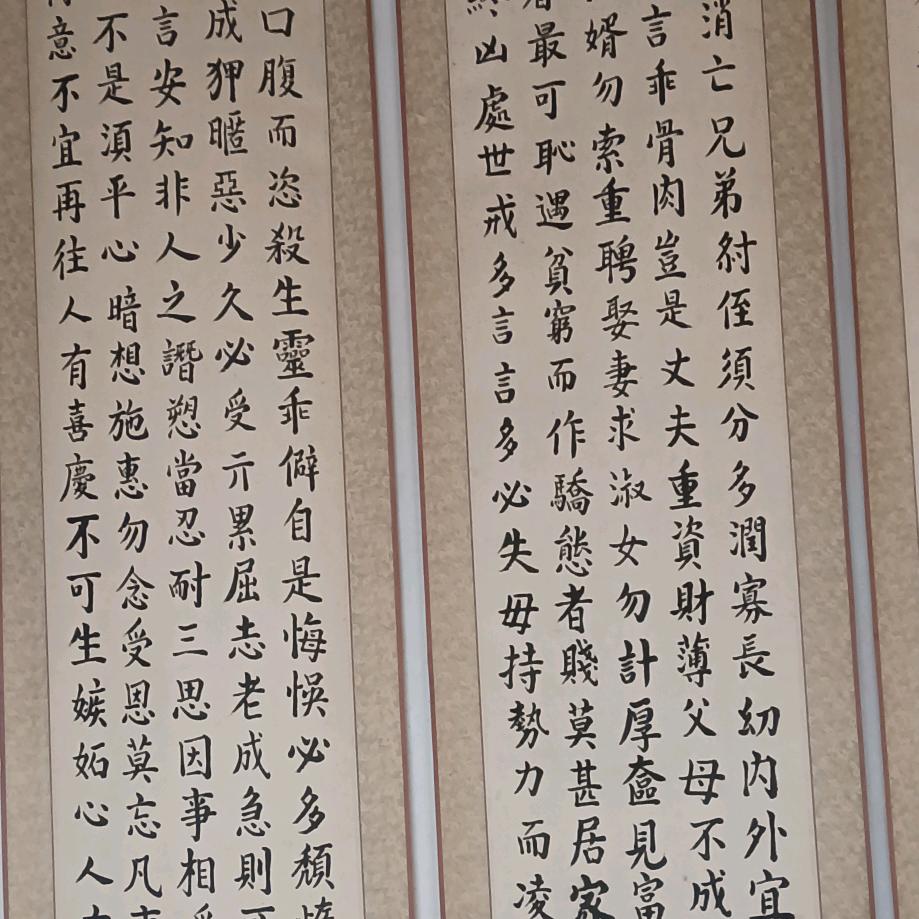 消亡兄弟尌侄須分多潤寡長幼内外宜
言乖骨肉豈是丈夫重資財薄父母不成
婿勿索重聘娶妻求淑女勿計厚奩見富
最可恥遇貧窮而作驕態者賤莫甚居家
終凶處世戒多言言多必失毋持勢力而凌
口腹而恣殺生靈乖僻自是悔悞必多頹
成狎暱惡少久必受亓累屈志老成急則可
言安知非人之譖愬當忍耐三思因事相
不是湏平心暗想施惠勿念受恩莫忘凡
意不宜再往人有喜慶不可生嫉妬心人